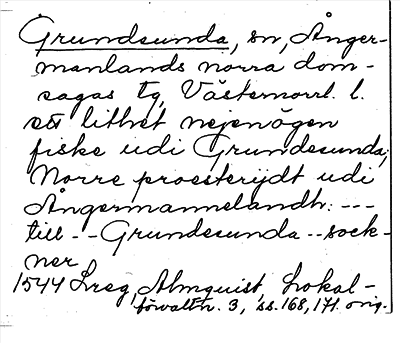 Grundsunda, sn, Ånger-
manlands norra dom-
sagas tg, Västernorrl. l.
ett lithet nejenögen
fiske udi Grundesunda,
Norre proesterijdt udi
Ångermannelandh: ---
till -- Grundesunda -- sock-
ner
1544 Lreg, Almquist, Lokal-
förvaltn. 3, ss. 168, 171. orig.